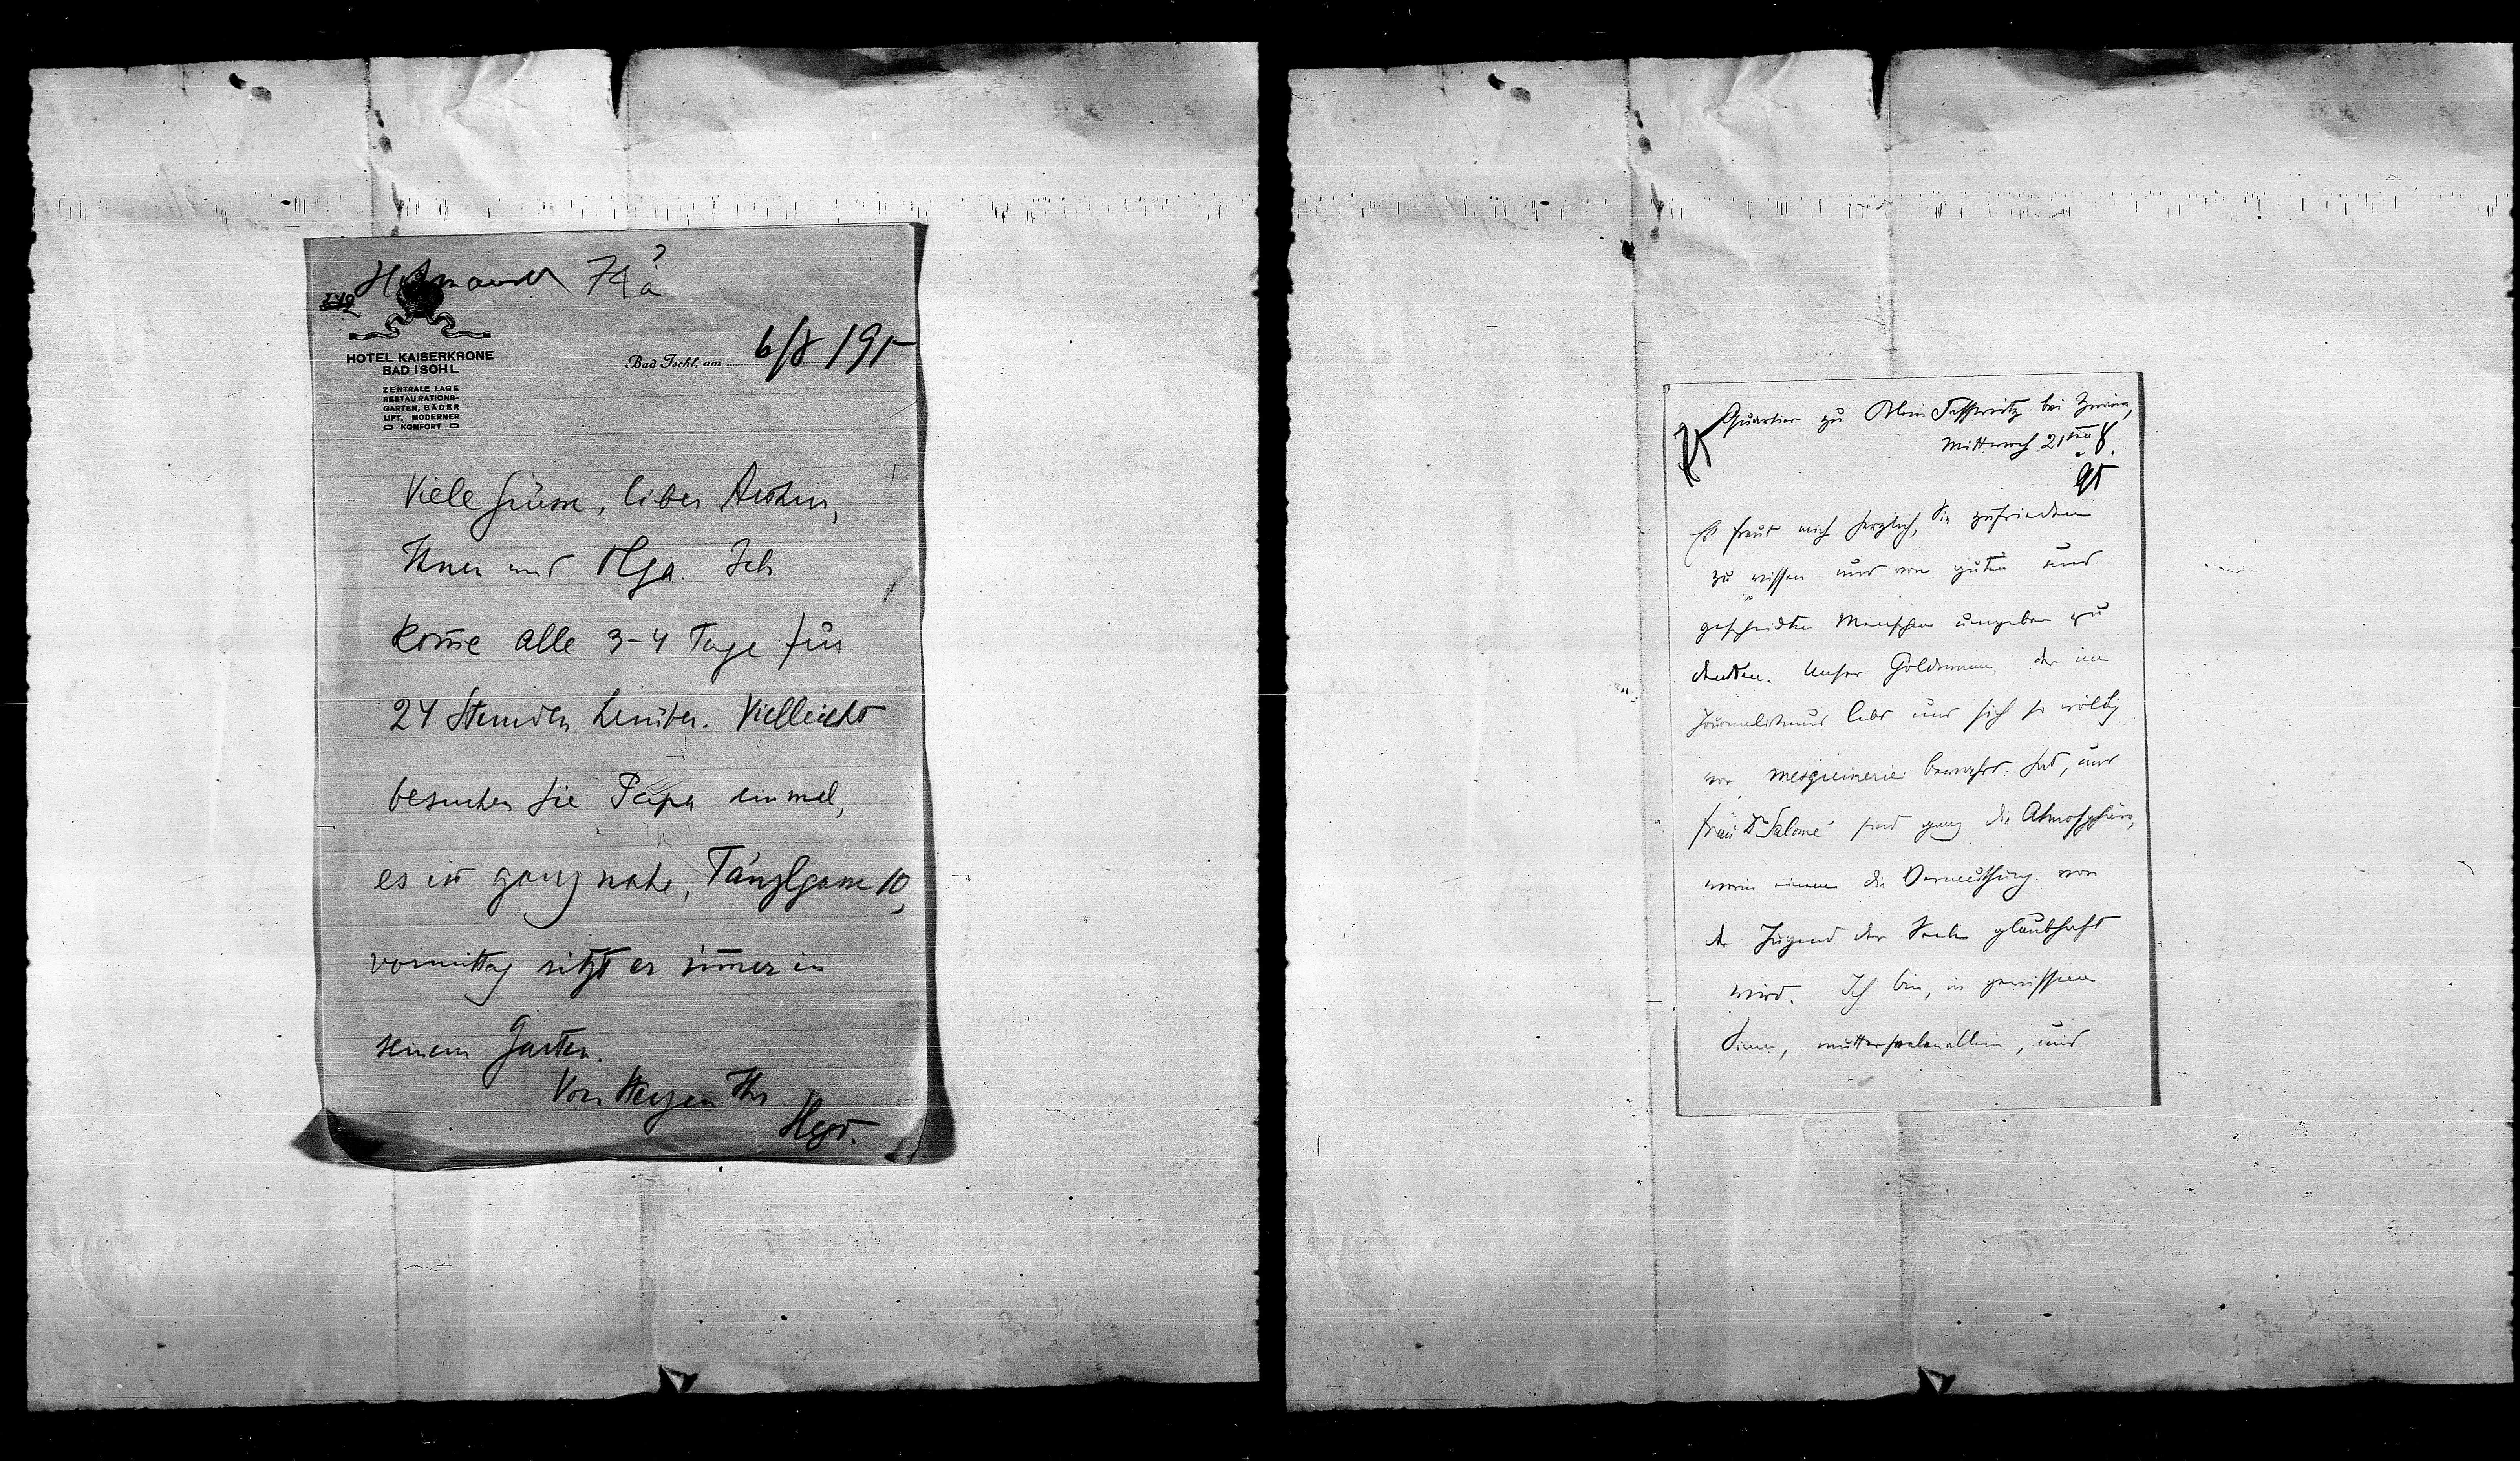 Hofmannsthal 74a?
342
HOTEL KAISERKRONE
BAD ISCHL
ZENTRALE LAGE
RESTAURATIONS-
GARTEN, BÄDER
LIFT, MODERNER
KOMFORT
Bad Ischl, am 6/8 191
Viele Grüsse, lieber Arthur,
Ihnen und Olga. Ich
kom̅e alle 3–4 Tage für
24 Stunden herüber. Vielleicht
besuchen Sie Papa einmal,
es ist ganz nahe, Tänzlgasse 10,
vormittag sitzt er im̅er in
seinem Garten.
Von Herzen Ihr
Hugo.
Quartier zu Klein Tesswitz bei Znaim,
Mittwoch 21ten 8.
95
Es freut mich herzlich, Sie zufrieden
zu wissen und von guten und
gescheidten Menschen umgeben zu
denken. Unser Goldmann, der im
Journalismus lebt und sich so völlig
vor mesquinerie bewahrt hat, und
Frau Dr Salomé sind ganz die Atmosphäre,
worin einem die Vermuthung von
der Jugend der Seele glaubhaft
wird. Ich bin, in gewissem
Sinne, mutterseelenallein, und